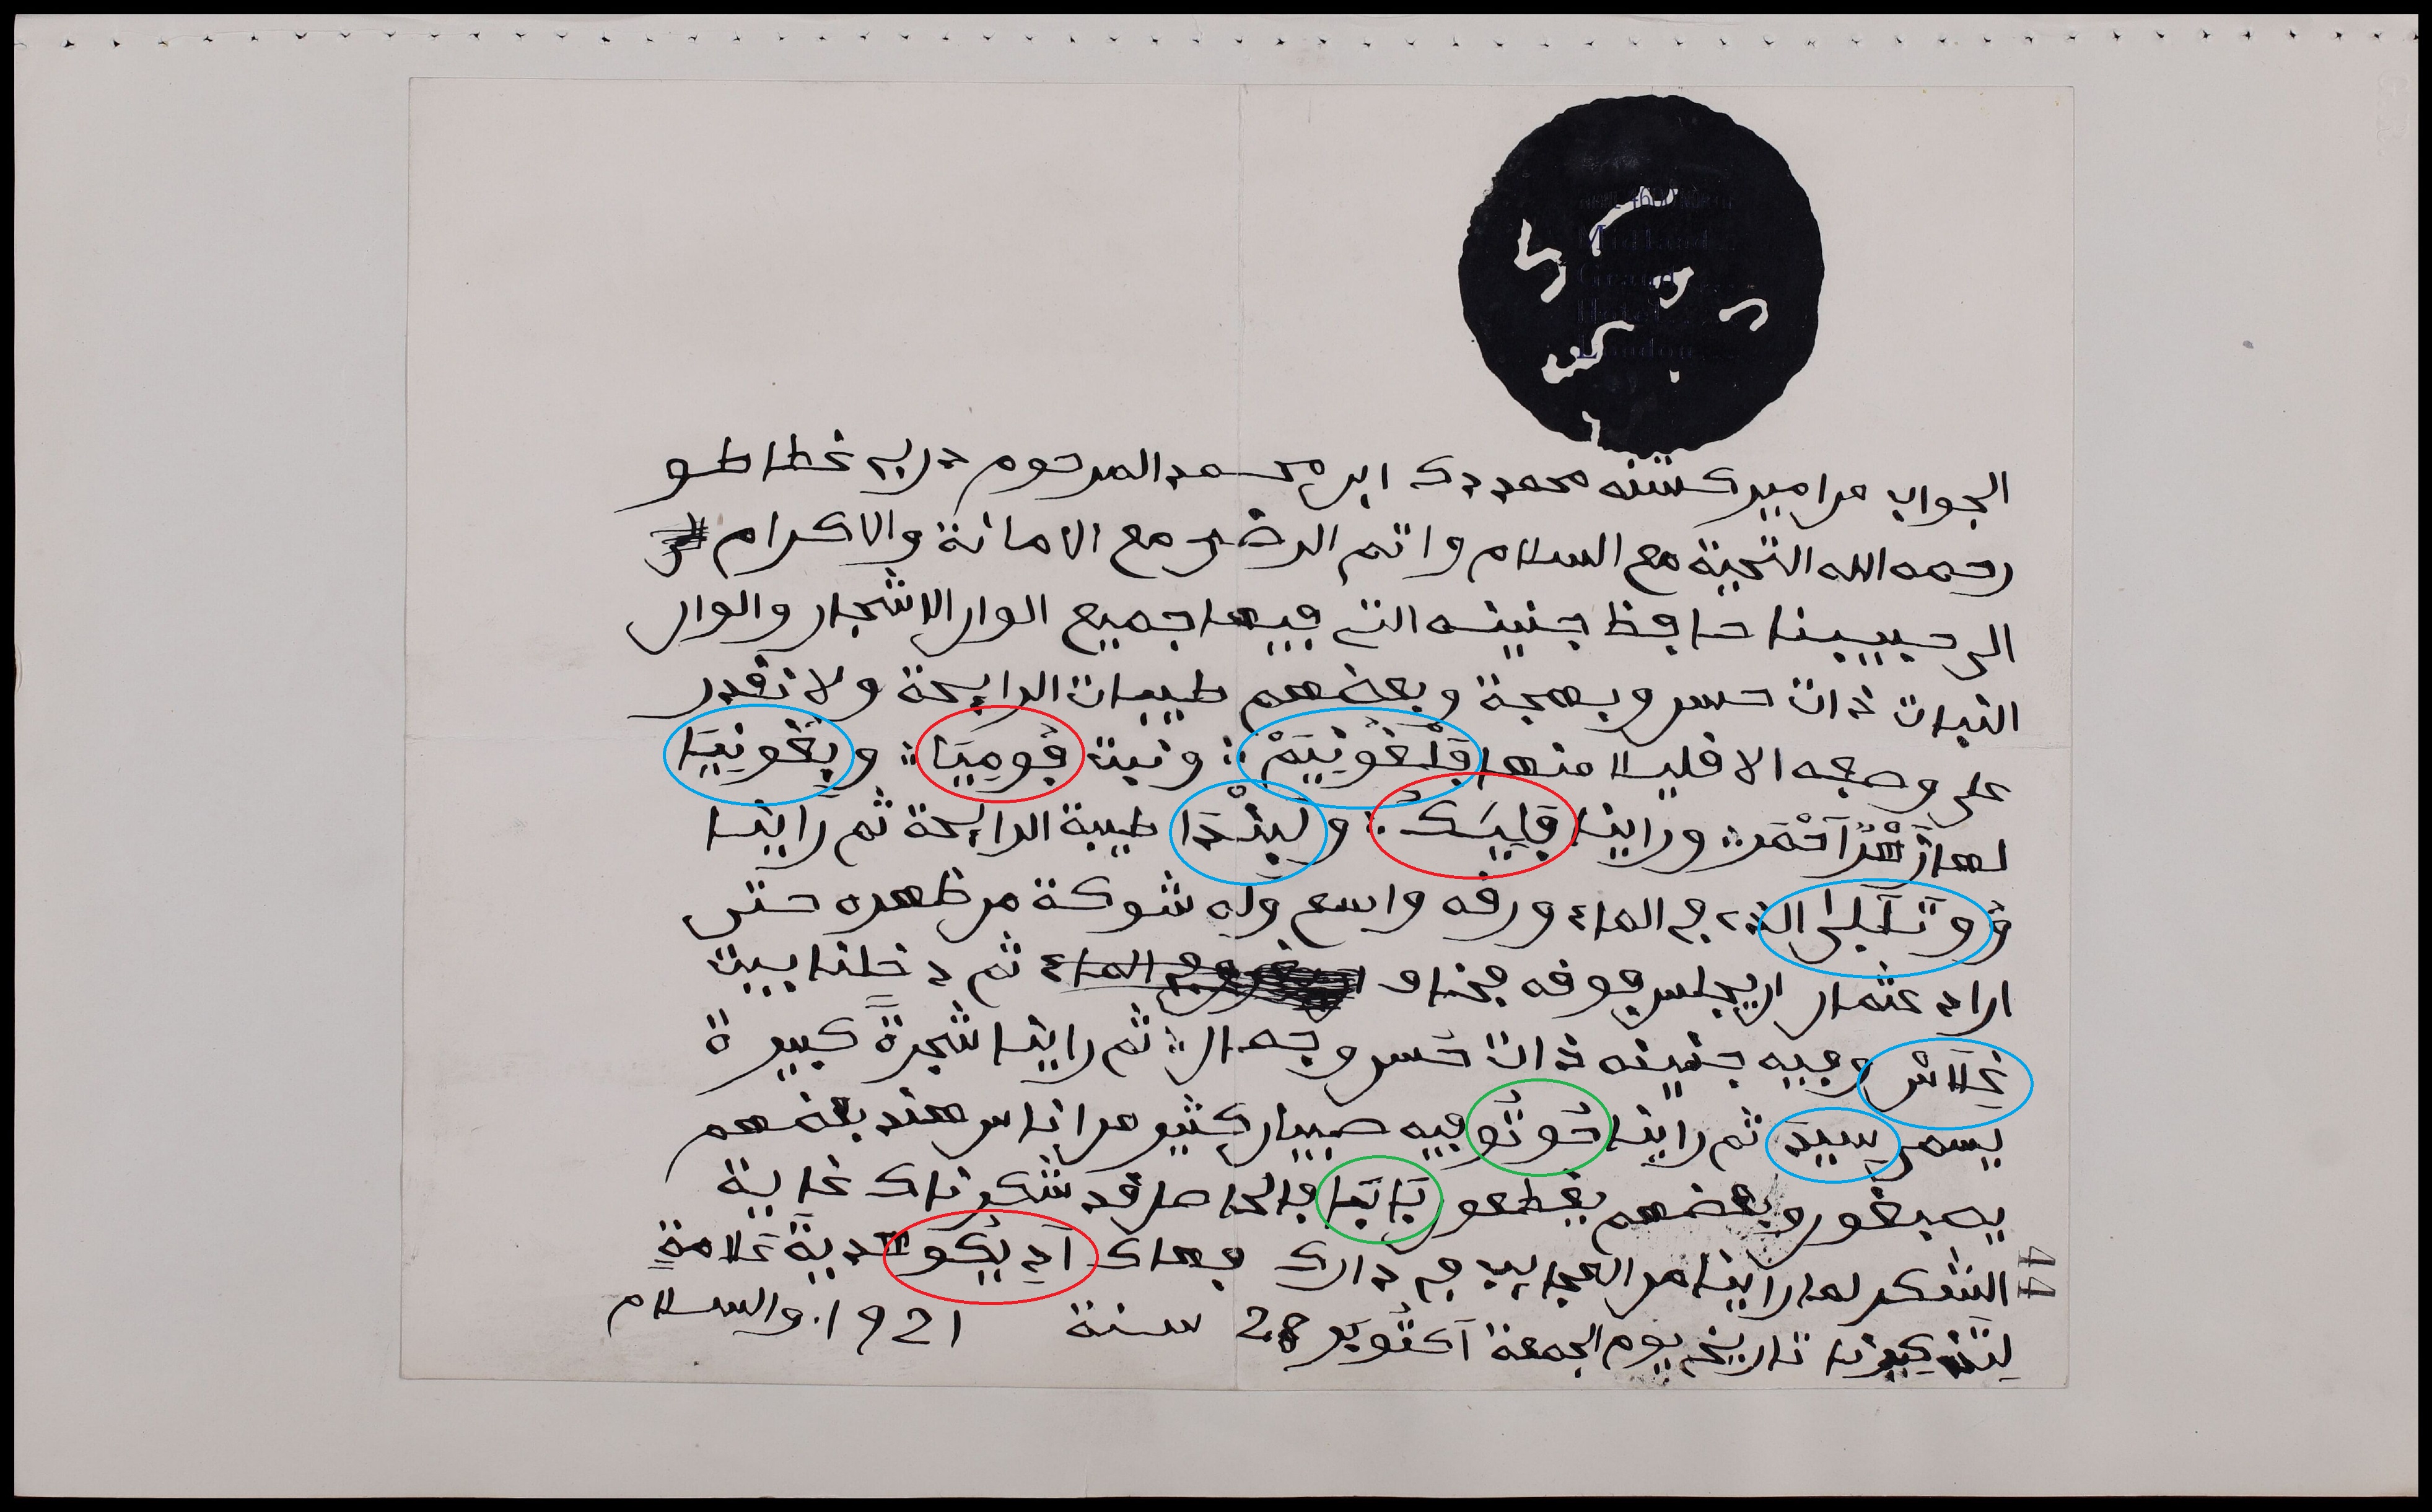 Midland
Grand
Hotel
London
الجواب من امير كشنه محمد دك ابن محمد المرحوم دربى غطاطو
رحمه الله التحية مع السلام واتم الرضى مع الامانة والاكرام
الى حبيبنا حافظ جنينه التى فيها جميع الوان الاشجار والوان
النبات ذات حسن وبهجة وبعضهم طيبات الرايحة ولا نقدر
على وصفه الا قليلا منها فَلَْغُونِيَمْ ؞ ونبت فُومِيَا ؞ وبِغَونِيَا
لها زَهْرًا اَحْمَرَ ؞ وراينا فَايِسَكُ ؞ ولَبِنْدَا طيبة الرايحة ثم راينا
قُوتَلَيلى الذى فى الماء ورقه واسع وله شوكة من ظهره حتى
اراد عثمان ان يجلس فوقه فخاف فى الماء ثم دخلنا بيت
غِلَاشْ وفيه جنينه ذات حُسن وجمال ؞ ثم راينا شجرةً كبيرة
يسمى سِيدَ ثم راينا حُوتُو فيه صبيان كثير من اناس هند بعضهم
يصبغون وبعضهم يقطعون تَاتَيا فالحاصل قد شكرناك غاية
الشكر لما راينا من العجايب فى دارك فهاك اَدِيكَو هديةً عَلَامةً
لِتذكيرنا تاريخ يوم الجمعة اَكتُوبَر 28 سنة 1921. والسلام